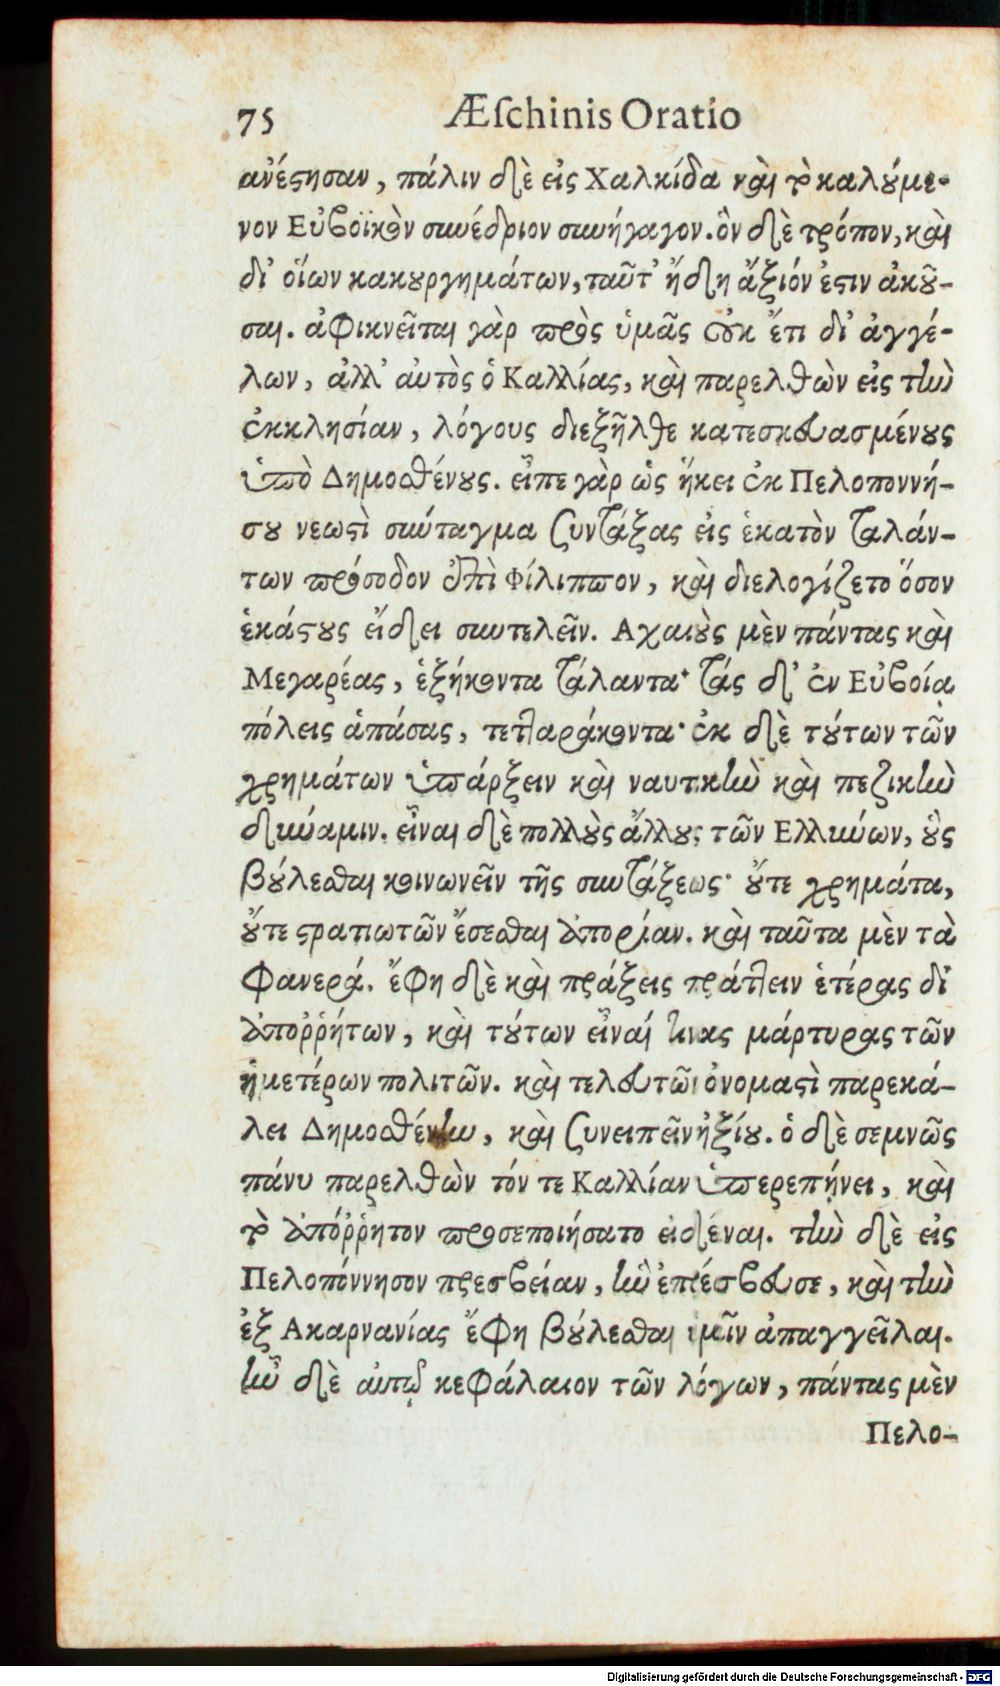 75 Æſchinis Oratio
ανέστησαν, πάλιν δὲ εἰς Χαλκίδα καὶ τὸ καλούμε-
νον Εὐβοϊκὸν συνέδριον συνήγαγον. ὃν δὲ τρόπον, καὶ
δι’ οἵων κακουργημάτων, ταῦτ’ ἤδη ἄξιόν ἐστιν ἀκοῦ-
σαι. ἀφικνεῖται γὰρ πρὸς ὑμᾶς οὐκ ἔτι δι’ ἀγγέ-
λων, ἀλλ’ αὐτὸς ὁ Καλλίας, καὶ παρελθὼν εἰς τὴν
ἐκκλησίαν, λόγους διεξῆλθε κατεσκευασμένους
ὑπὸ Δημοσθένους. εἶπε γὰρ ὡς ἥκει ἐκ Πελοποννή-
σου νεωστὶ σύνταγμα συντάξας εἰς ἑκατὸν ταλάν-
των πρόσοδον ἐπὶ Φίλιππον, καὶ διελογίζετο ὅσον
ἑκάστους ἔδει συντελεῖν. Αχαιοὺς μὲν πάντας καὶ
Μεγαρέας, ἑξήκοντα τάλαντα· τάς δ’ ἐν Εὐβοίᾳ
πόλεις ἁπάσας, τετταράκοντα· ἐκ δὲ τούτων τῶν
χρημάτων ὑπάρξειν καὶ ναυτικὴν καὶ πεζικὴν
δύναμιν. εἶναι δὲ πολλοὺς ἄλλους τῶν Ελλήνων, οὓς
βούλεσθαι κοινωνεῖν τῆς συντάξεως· οὔτε χρημάτα,
οὔτε στρατιωτῶν ἔσεσθαι ἀπορίαν. καὶ ταῦτα μὲν τὰ
φανερά. ἔφη δὲ καὶ πράξεις πράττειν ἑτέρας δι’
ἀποῤῥήτων, καὶ τούτων εἶναί τινας μάρτυρας τῶν
ἡμετέρων πολιτῶν. καὶ τελευτῶν ὀνομαστὶ παρεκά-
λει Δημοσθένην, καὶ συνειπεῖν ἠξίου. ὁ δὲ σεμνῶς
πάνυ παρελθὼν τόν τε Καλλίαν ὑπερεπῄνει, καὶ
τὸ ἀπόῤῥητον προσεποιήσατο εἰδέναι. τὴν δὲ εἰς
Πελοπόννησον πρεσβείαν, ἣν ἐπρέσβευσε, καὶ τὴν
ἐξ Ακαρνανίας ἔφη βούλεσθαι ὑμῖν ἀπαγγεῖλαι.
ἦν δὲ αὐτῷ κεφάλαιον τῶν λόγων, πάντας μὲν
Πελο-
Digitalisierung gefördert durch die Deutsche Forschungsgemeinschaft - DFG